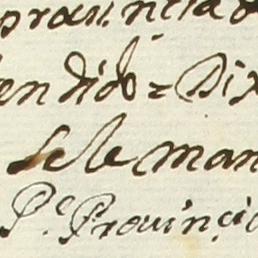 provincia d
endido = Dix
se le man
P.e Provinci